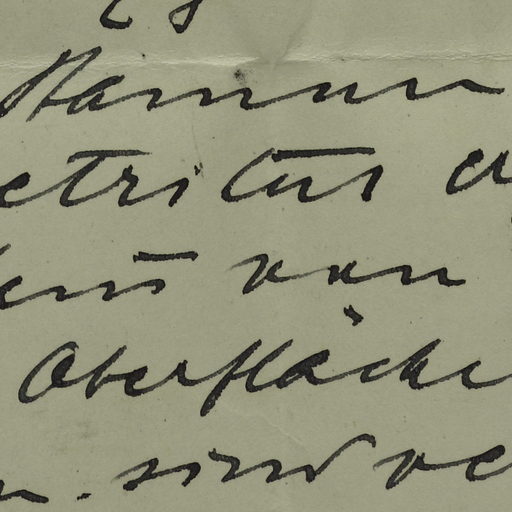 Stamm
etritus
von
Oberfläche
sind ve